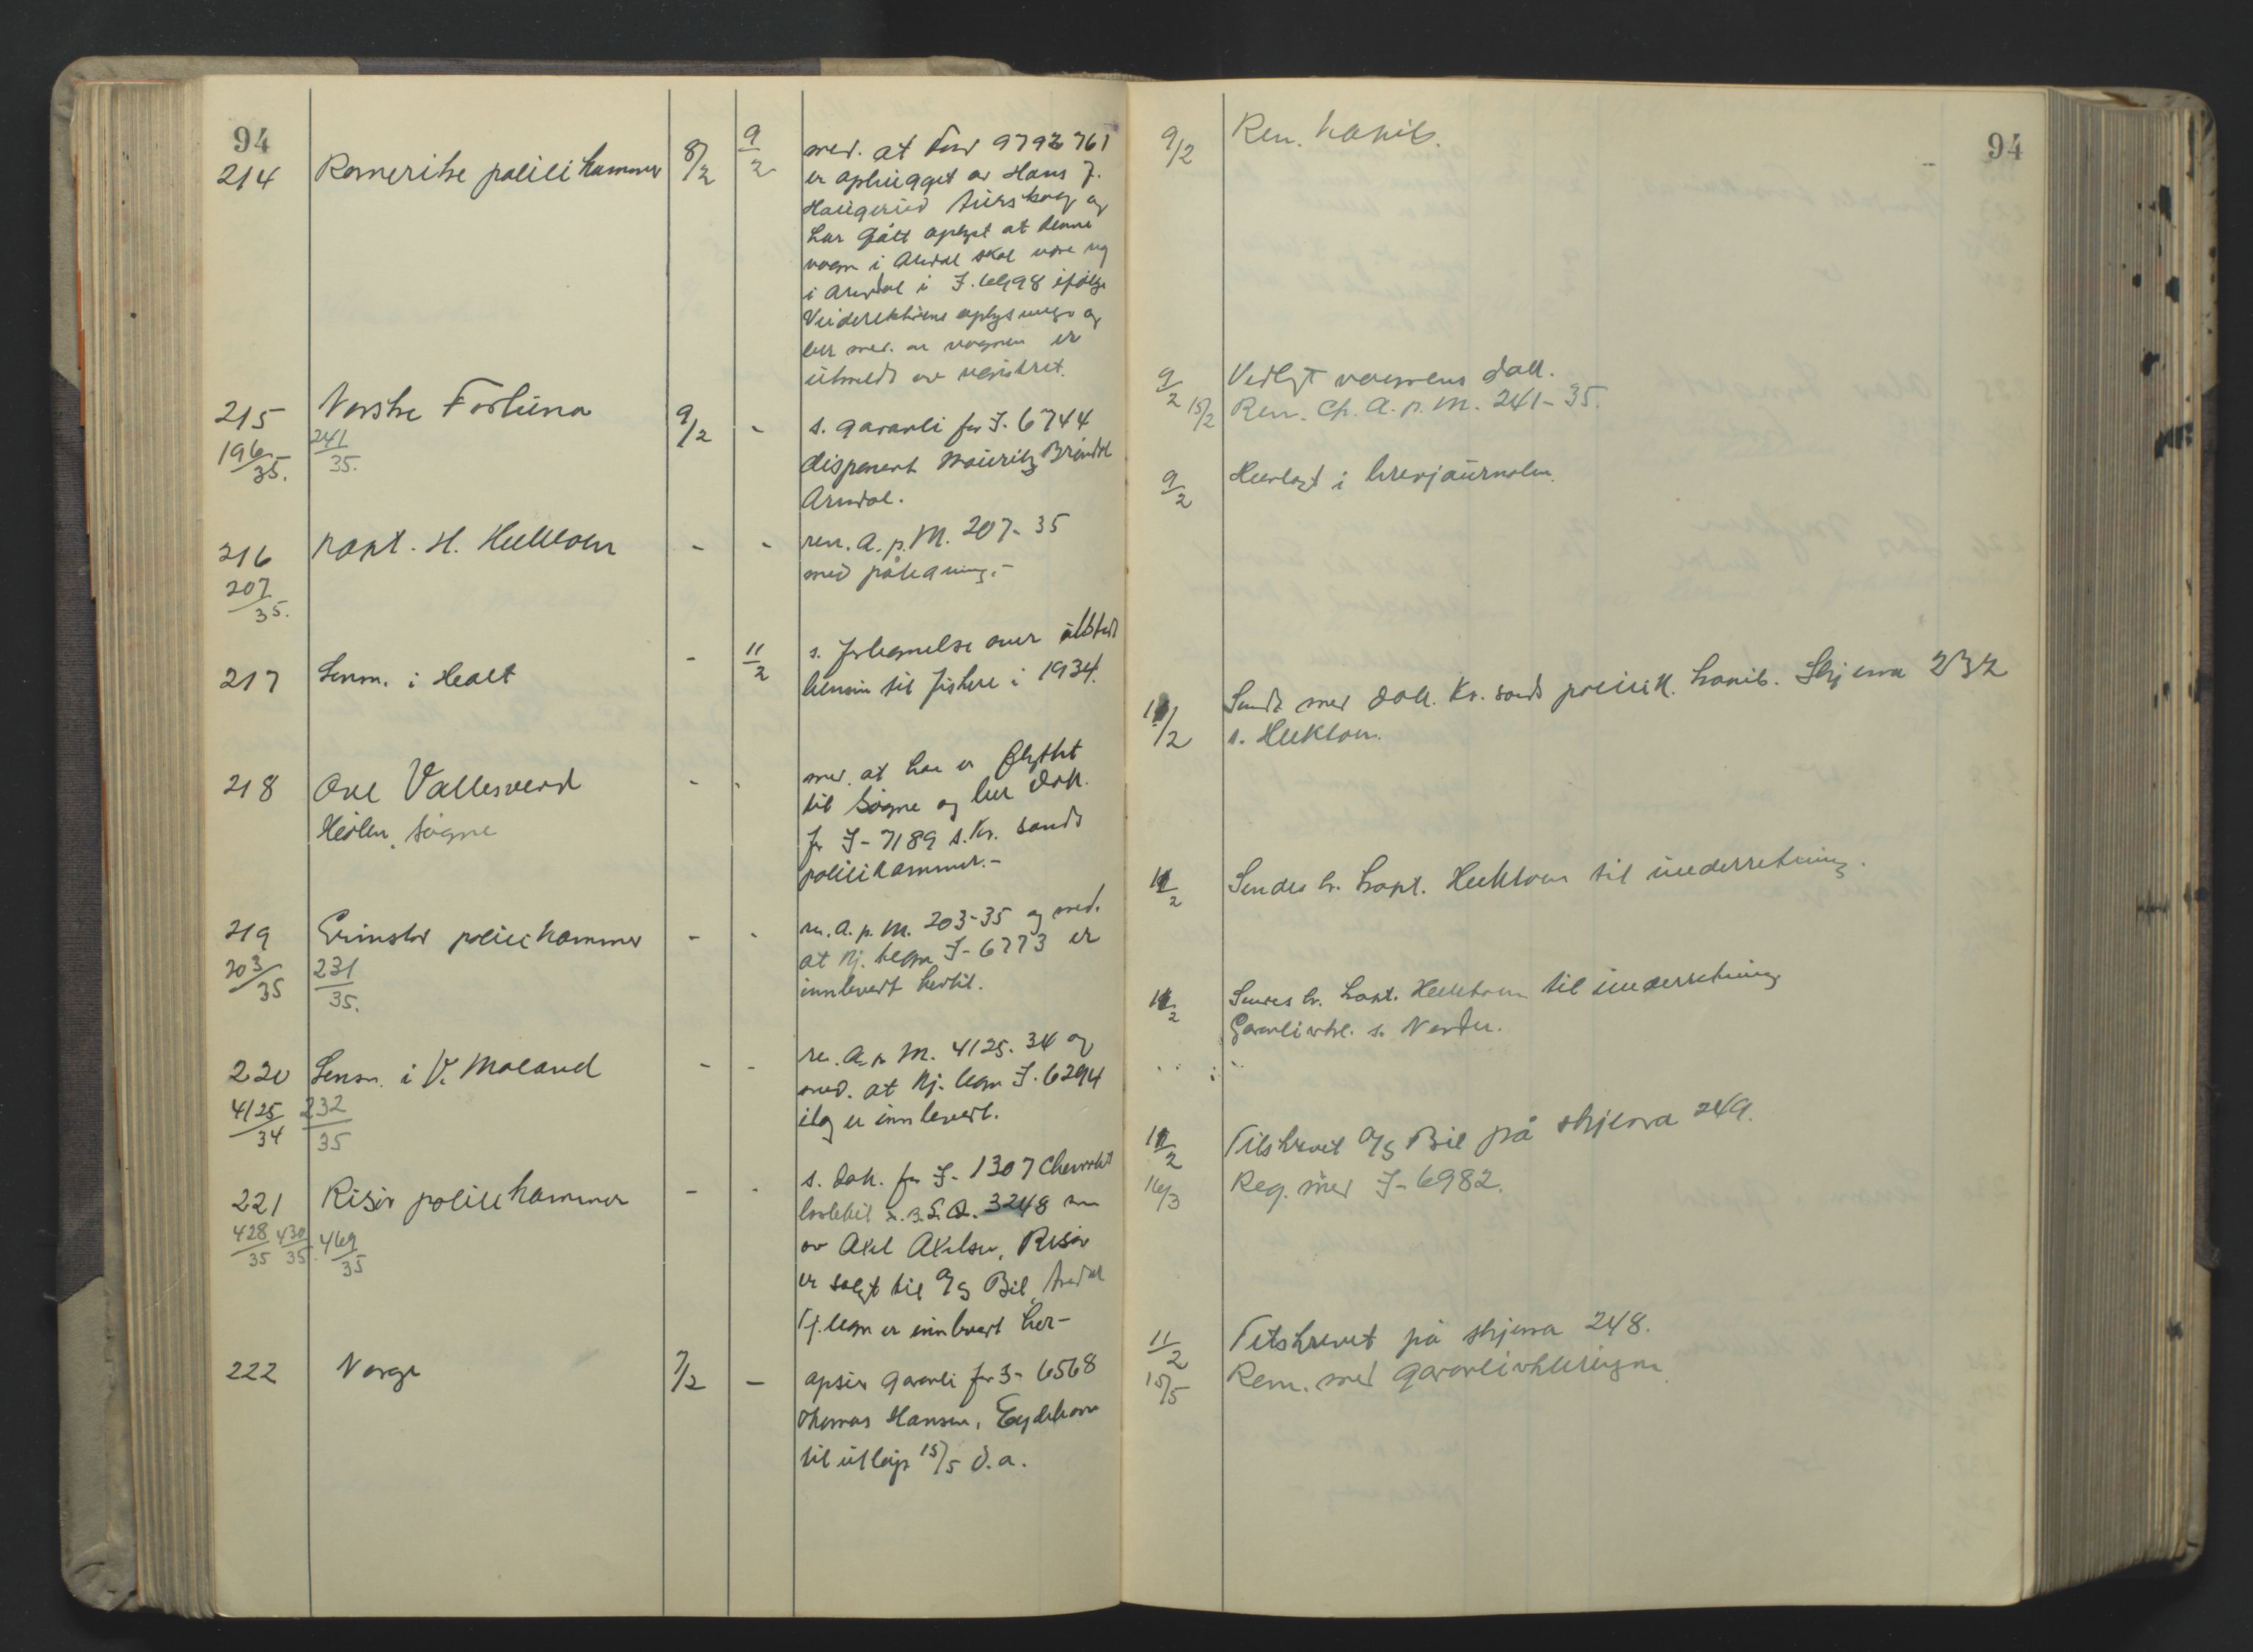 94
214 Romerike politikammer 8/2 9/2 med. at Ford 9792761
er ophugget av Hans J.
Haugerud Aurskog og
har fått oplyst at denne
vogn i Arendal skal være reg
i Arendal i I. 6998 ifølge
Veidirektørens oplysninger og
ber med. om vognen er
utmeldt av registret.
215 Norske Fortuna 9/2 - s. garanti for I. 6744
196/35. 241/35. disponent Mauritz Brindal
Arendal.
216 Kapt. H. Heektoen - - ren. A. p. M. 207-35
207/35. med påtegning.-
217 Lensm. i Holt - 11/2 s. fortegnelse over utstedt
bensin til fiskere i 1934.
218 Ove Vallesverd - - med. at han er flyttet
Høllen, Søgne til Søgne og ber dok.
for I-7189 s. Kr. sands
politikammer.-
219 Grimstad politikammer - - ren. A. p. M. 203-35 og med.
203/35 231/35. at kj. tegn I-6773 er
innlevert hertil.
220 Lensm. i V. Moland - - ren. A. p. M. 4125-34 og
4125/34 232/35 med. at kj. tegn I-6294
idag er innlevert.
221 Risør politikammer - - s. dok. for I-1307 Chevrolet
428/35 430/35. 469/35 lastebil 3248 som
av Axel Axelsen, Risør
er solgt til A/S Bil, Arendal
Kj. tegn er innlevert her-
222 Norge 7/2 - opsier garanti for I-6568
Thomas Hansen, Eydehavn
til utløp 15/5 d.a.
94
9/2 Ren. kapit.
9/2 Vedlagt vognens dok.
15/2 Ren. Ch. A. p. M. 241-35.
9/2 Henlagt i brevjournalen.
11/2 Sendt med dok. Kr. sands politik. kapit. Skjema 232
s. Heektoen.
11/2 Sendes hr. kapt. Heektoen til underretning.
11/2 Sendes hr. kapt. Heektoen til underretning
Garantierkl. s. Norden.
" " : "
11/2 Tilskrevet A/S Bil på skjema 249.
16/3 Reg. med I-6982.
11/2 Tilskrevet på skjema 248.
15/5 Ren. med garantierklæringen